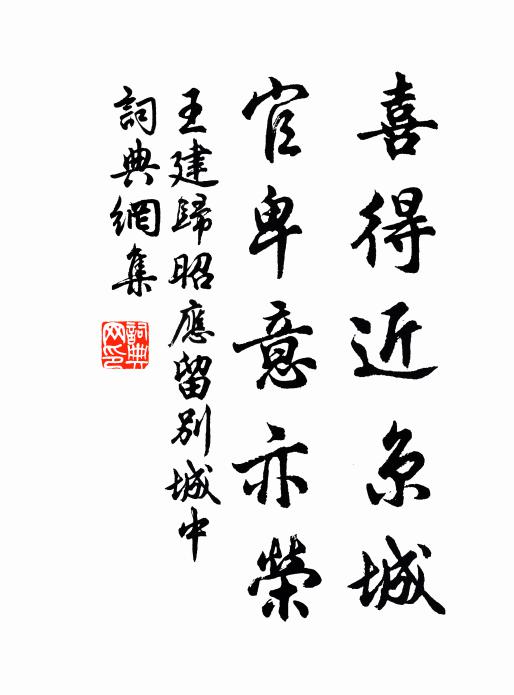 喜得近京城
官卑意亦榮
王建歸昭應留別城中
詞典網集
詞典
网印